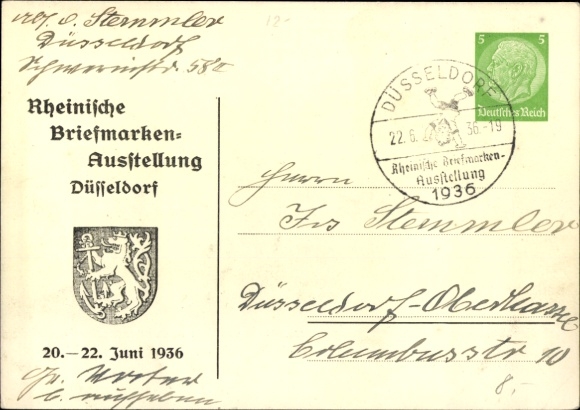 v. Stemmler
Düsseldorf
Schwerinstr. 58 II
Rheinische
Briefmarken-
Ausstellung
Düsseldorf
20.—22. Juni 1936
5 5
Deutsches Reich
DÜSSELDORF
22.6. 36.-19
Rheinische Briefmarken-
Ausstellung
1936
Herrn
Stemmler
Düsseldorf-Oberkassel
10
8.-